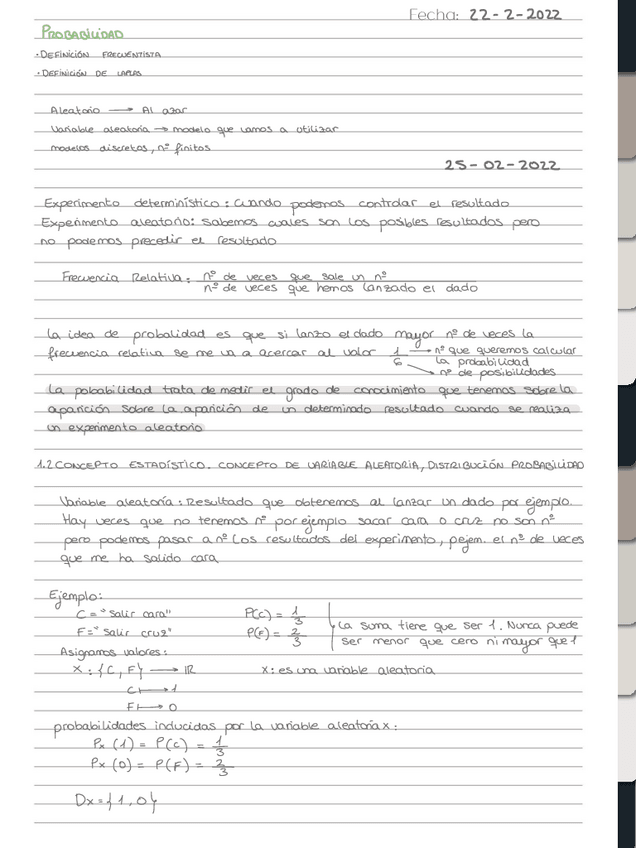 Fecha: 22-2-2022
PROBABILIDAD
·DEFINICIÓN FRECUENTISTA
·DEFINICIÓN DE LAPLAS
Aleatorio → Al azar
Variable aleatoria → modelo que vamos a utilizar
modelos discretos, nº finitos
25-02-2022
Experimento determinístico: Cuando podemos controlar el resultado
Experimento aleatorio: Sabemos cuales son los posibles resultados pero
no podemos precedir el resultado
Frecuencia Relativa: nº de veces que sale un nº
nº de veces que hemos lanzado el dado
La idea de probalidad es que si lanzo el dado mayor nº de veces la
frecuencia relativa se me va a acercar al valor 1/6 → nº que queremos calcular
la probabilidad
→ nº de posibilidades
La pobabilidad trata de medir el grado de conocimiento que tenemos sobre la
aparición sobre la aparición de un determinado resultado cuando se realiza
un experimento aleatorio
1.2 CONCEPTO ESTADÍSTICO. CONCEPTO DE VARIABLE ALEATORIA, DISTRIBUCIÓN PROBABILIDAD
Variable aleatoria: Resultado que obtenemos al lanzar un dado por ejemplo.
Hay veces que no tenemos nº por ejemplo sacar cara o cruz no son nº
pero podemos pasar a nº los resultados del experimento, p.ejem. el nº de veces
que me ha salido cara
Ejemplo:
C = "Salir cara" P(C) = 1/3
F = "Salir cruz" P(F) = 2/3
La suma tiene que ser 1. Nunca puede
ser menor que cero ni mayor que 1
Asignamos valores:
X: {C, F} → IR X: es una variable aleatoria
C ↦ 1
F ↦ 0
probabilidades inducidas por la variable aleatoria x:
Px (1) = P(C) = 1/3
Px (0) = P(F) = 2/3
Dx = {1, 0}